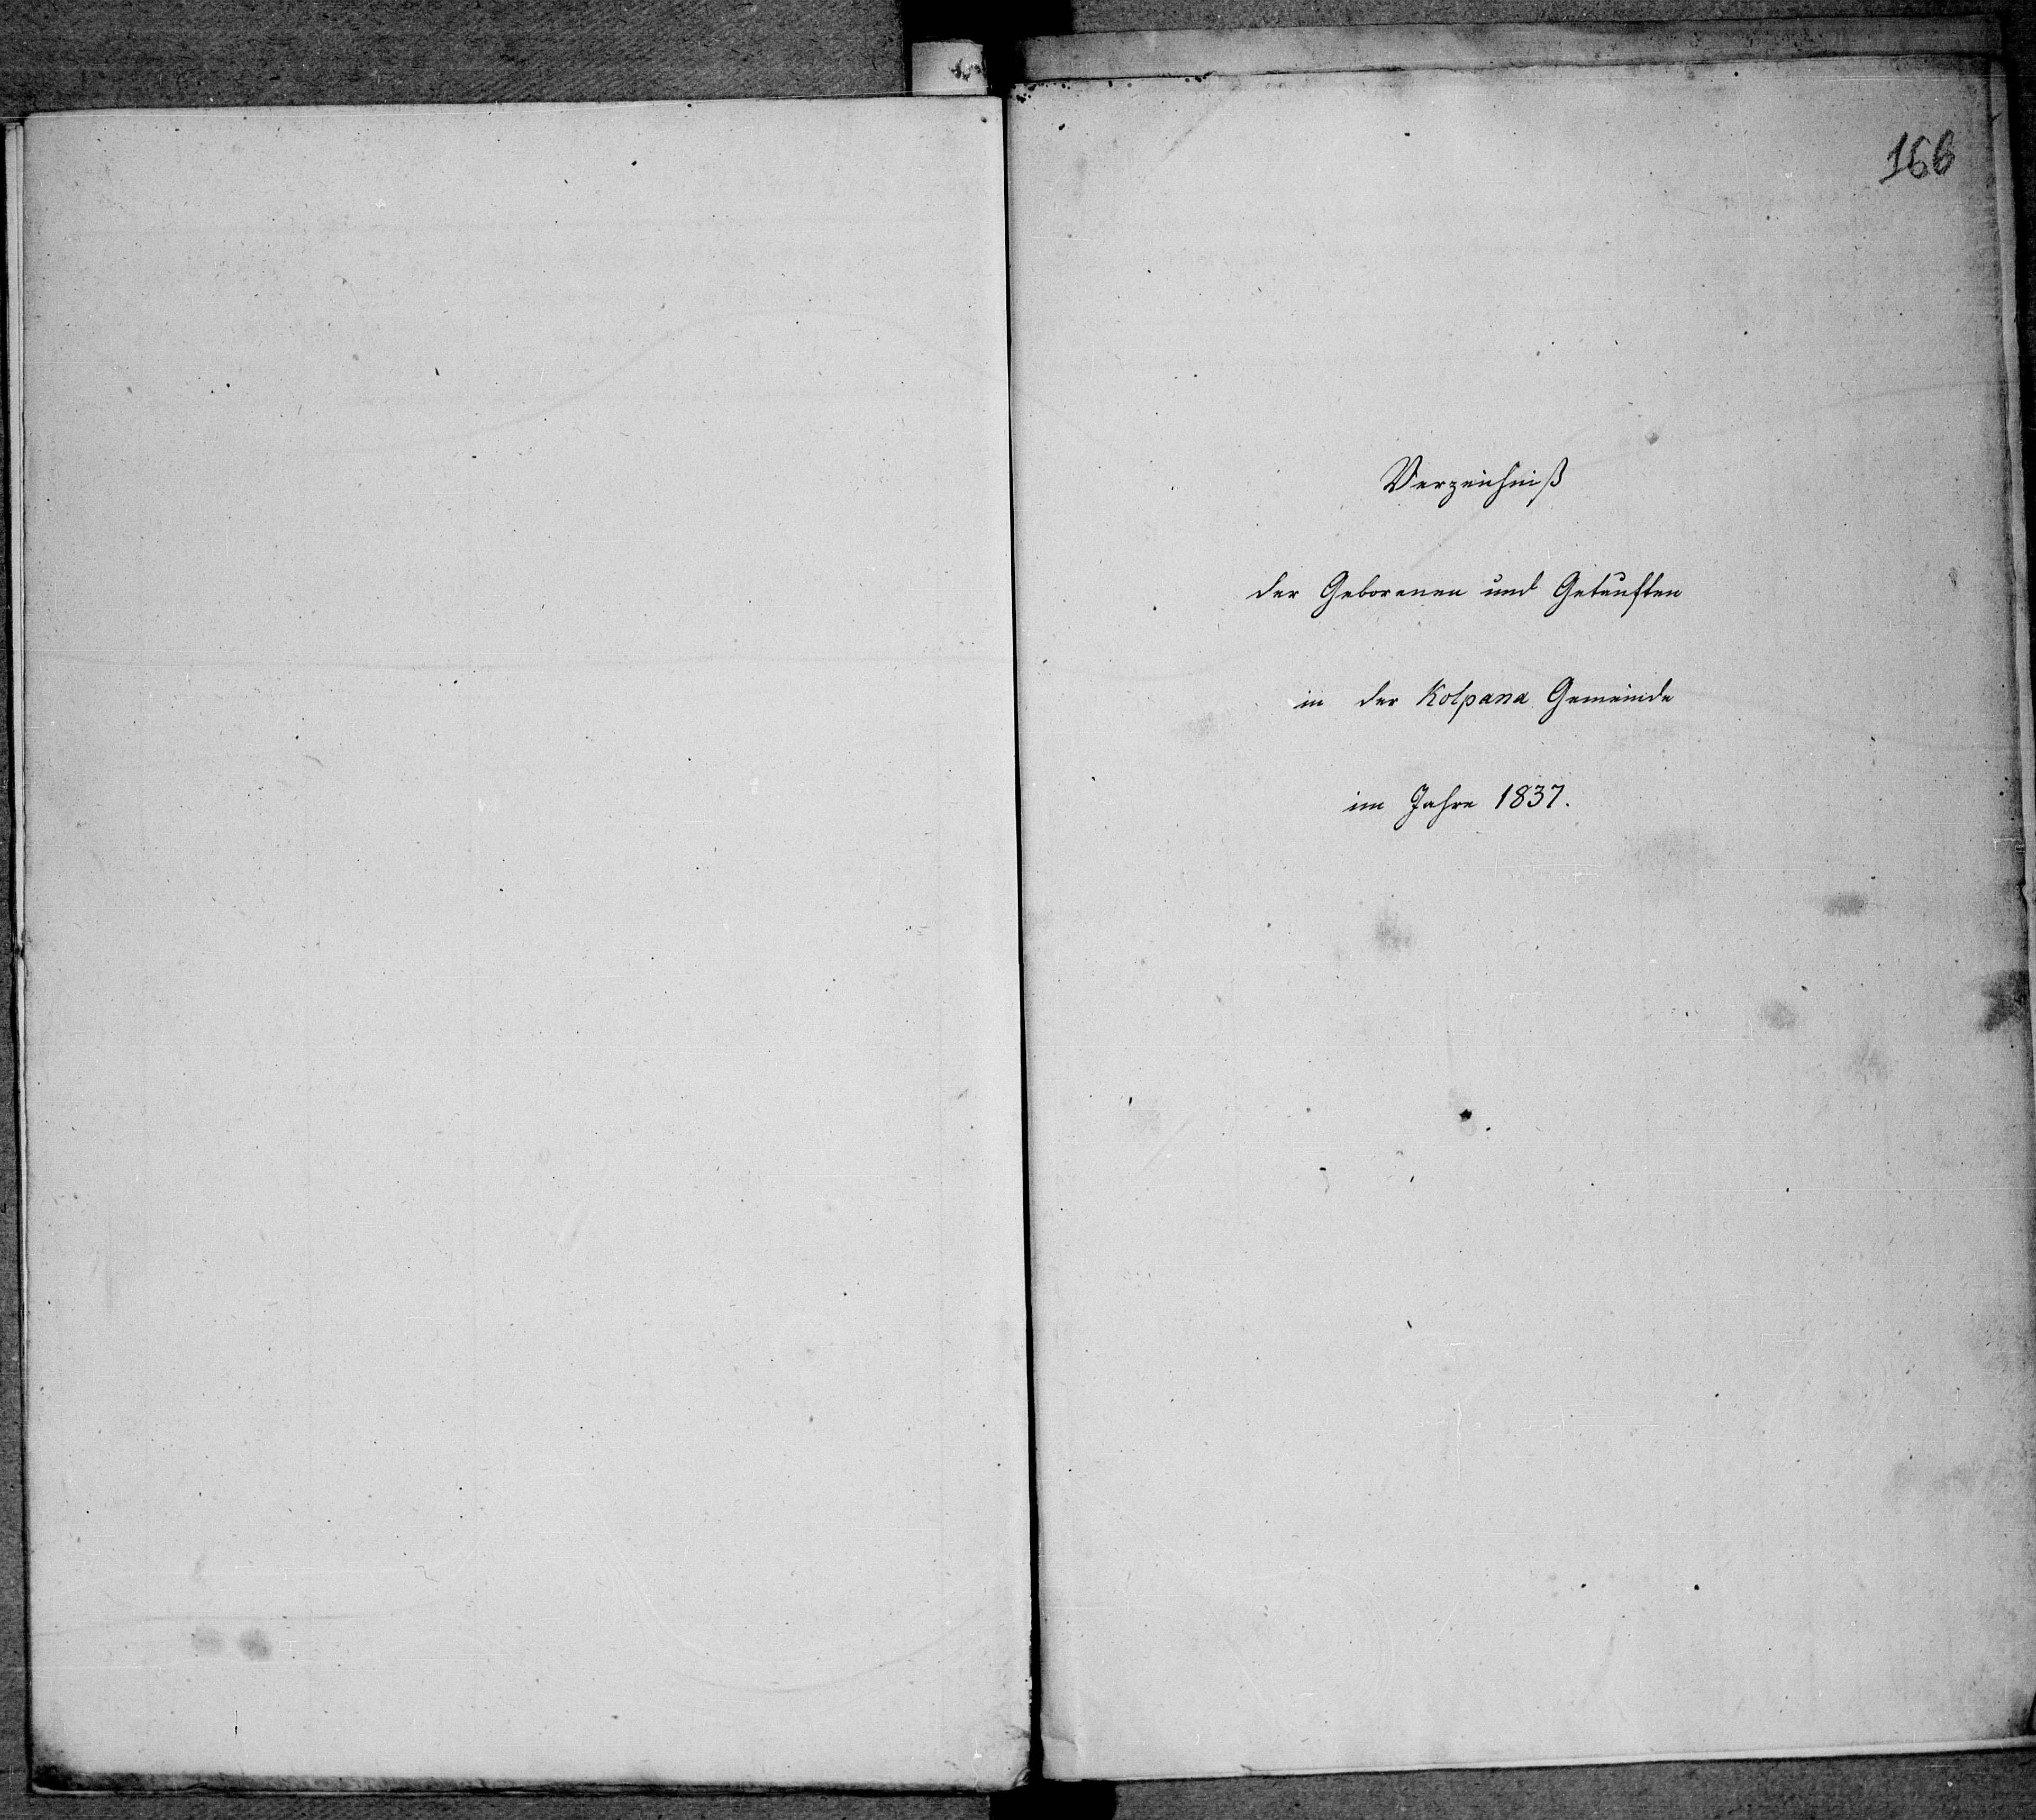 166
Verzeichniß
der Geborenen und Getauften
in der Kolpana Gemeinde
im Jahre 1837.